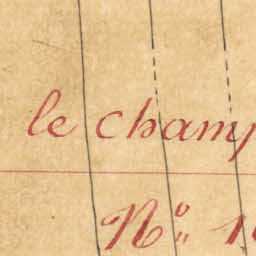 le champ
N.º 1